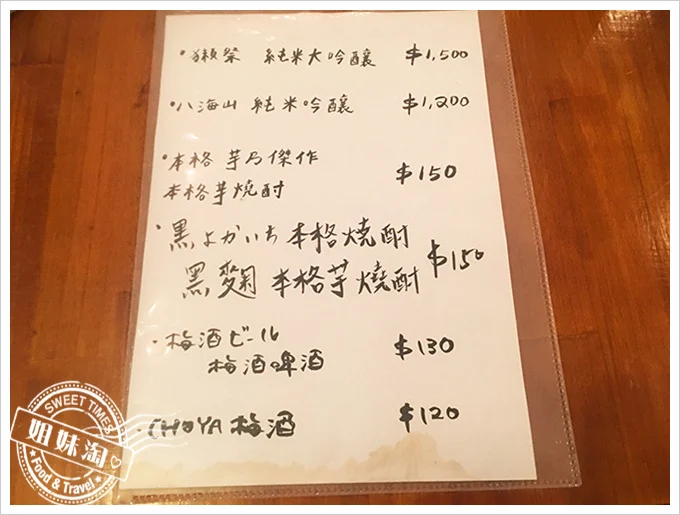 ・獺祭 純米大吟醸 $1,500
・八海山 純米吟醸 $1,200
・本格 芋乃傑作
本格芋燒酎 $150
・黒よかいち本格焼酎
黑麴本格芋燒酎 $150
・梅酒ビール
梅酒啤酒 $130
・CHOYA 梅酒 $120
SWEET TIMES
姐妹淘
Food & Travel